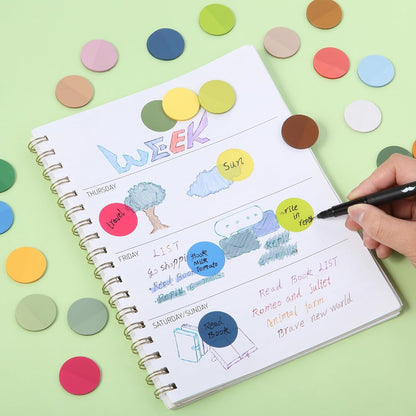 WEEK
THURSDAY
Sun
travel
write in
FRIDAY
LIST
go shopping
Book
Milk
Tomato
Read Book
SATURDAY/SUNDAY
Read
Book
Read Book LIST
Romeo and Juliet
Animal farm
Brave new world